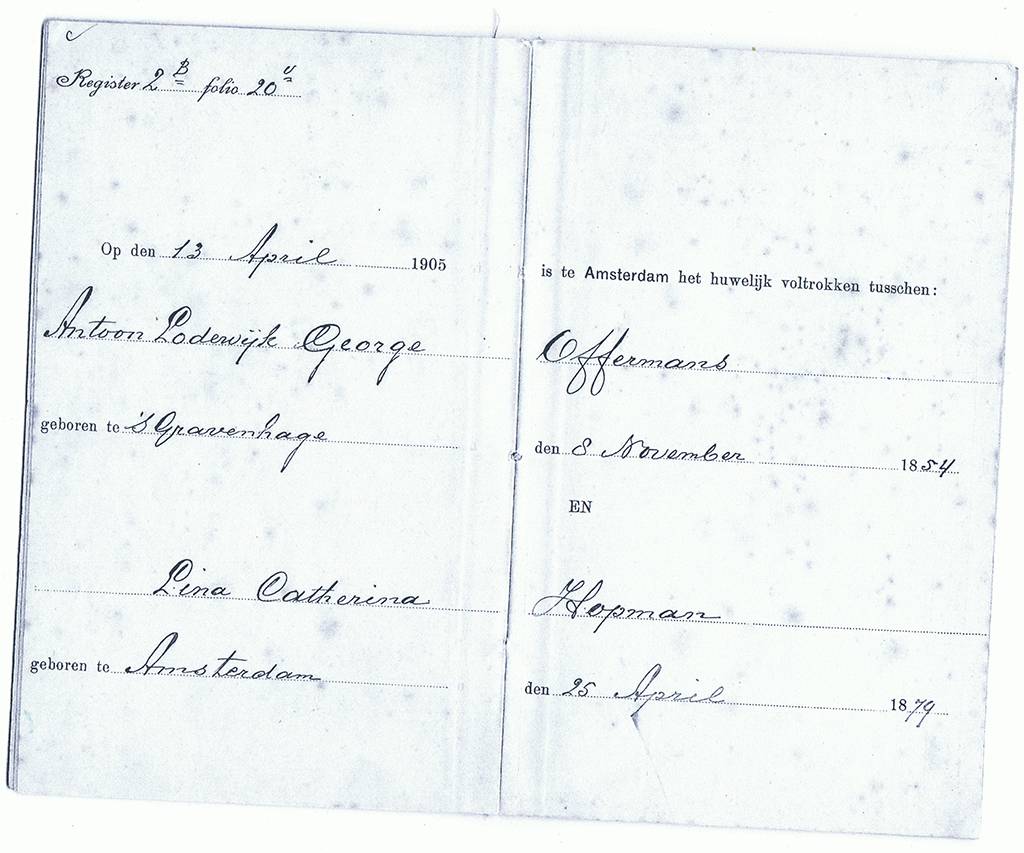 Register 2 B folio 20 v
Op den 13 April 1905
is te Amsterdam het huwelijk voltrokken tusschen:
Antoon Lodewijk George Offermans
geboren te 's Gravenhage den 8 November 1854
EN
Lina Catherina Hopman
geboren te Amsterdam den 25 April 1879